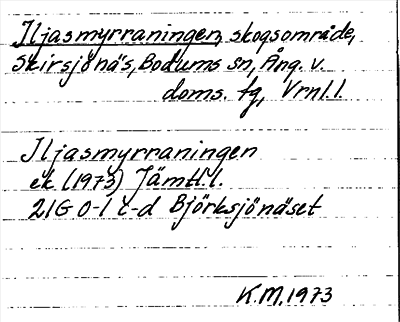 Iljasmyrraningen, skogsområde,
Skirsjönäs, Bodums sn, Ång. v.
doms. fg, Vrnl.l.
Iljasmyrraningen
ek. (1973) Jämtl.l.
21G 0-1 c-d Björksjönäset
K.M. 1973